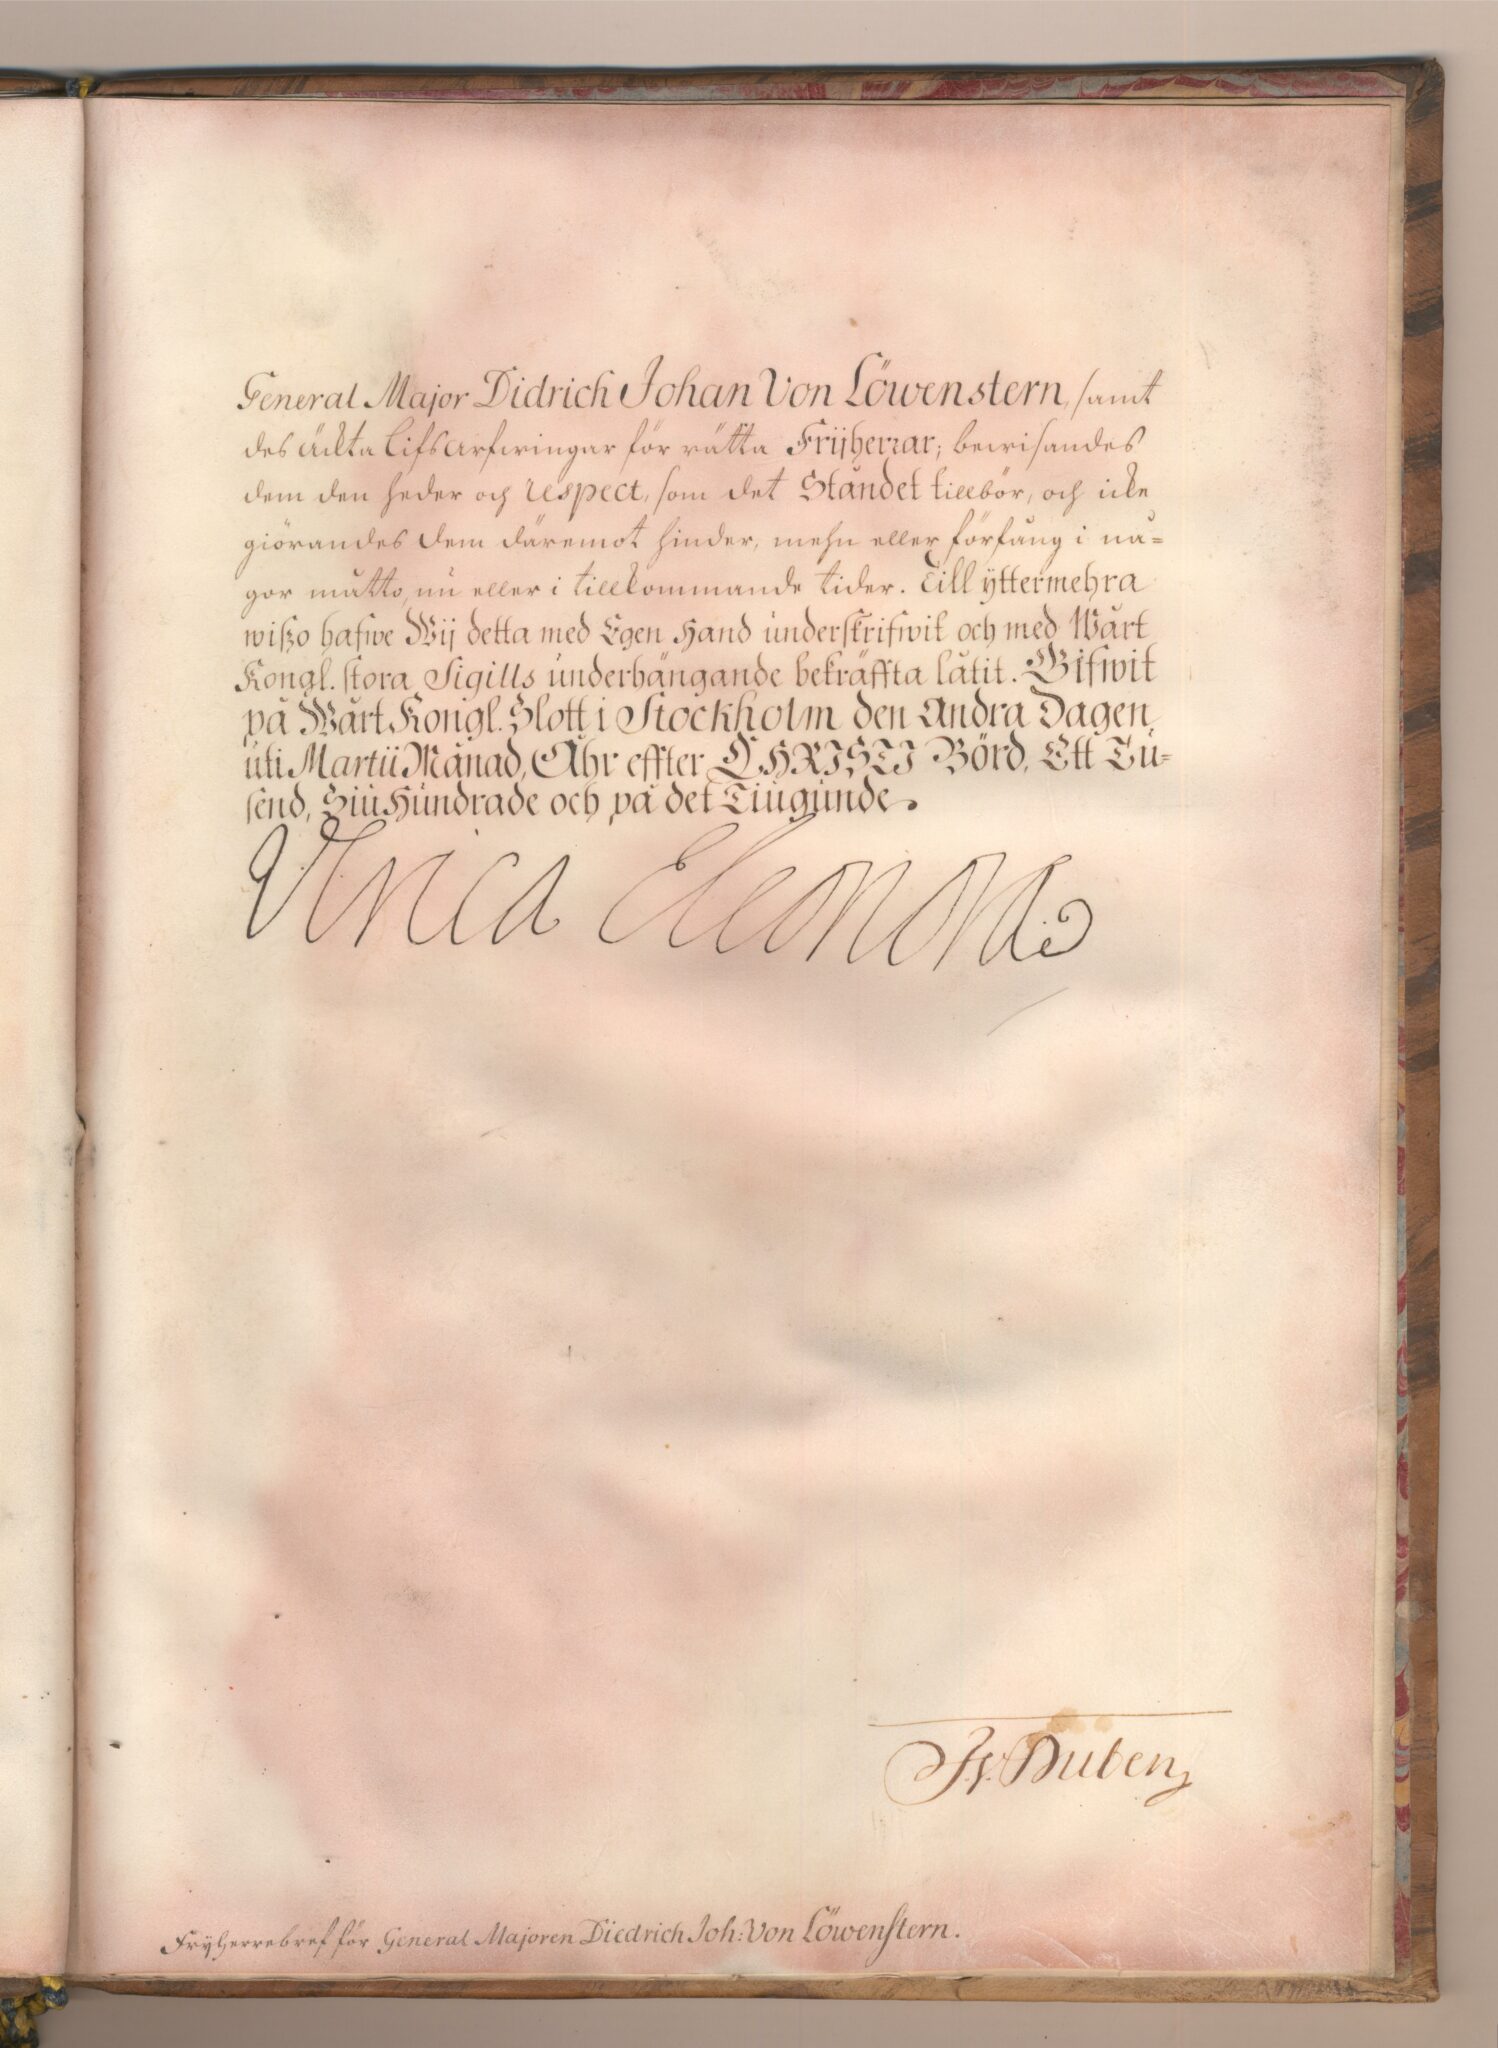 General Major Didrich Johan Von Löwenstern, samt
des äckta Lifs Arfwingar för rätta Frijherrar; bewisandes
dem den heder och respect, som det Ståndet tillbör, och icke
giörandes dem däremot hinder, mehn eller förfång i nå-
gor måtto, nu eller i tillkommande tider. Till yttermehra
wißo hafwe Wij detta med Egen Hand underskrifwit och med Wårt
Kongl. stora Sigills underhängande bekräffta låtit. Gifwit
på Wårt Kongl. Slott i Stockholm den Andra Dagen
uti Martii Månad, Åhr effter CHRISTI Börd, Ett Tu-
send, Siu Hundrade och på det Tiugunde.
Ulrica Eleonora
Düben
Frijherrebref för General Majoren Diedrich Joh: Von Löwenstern.